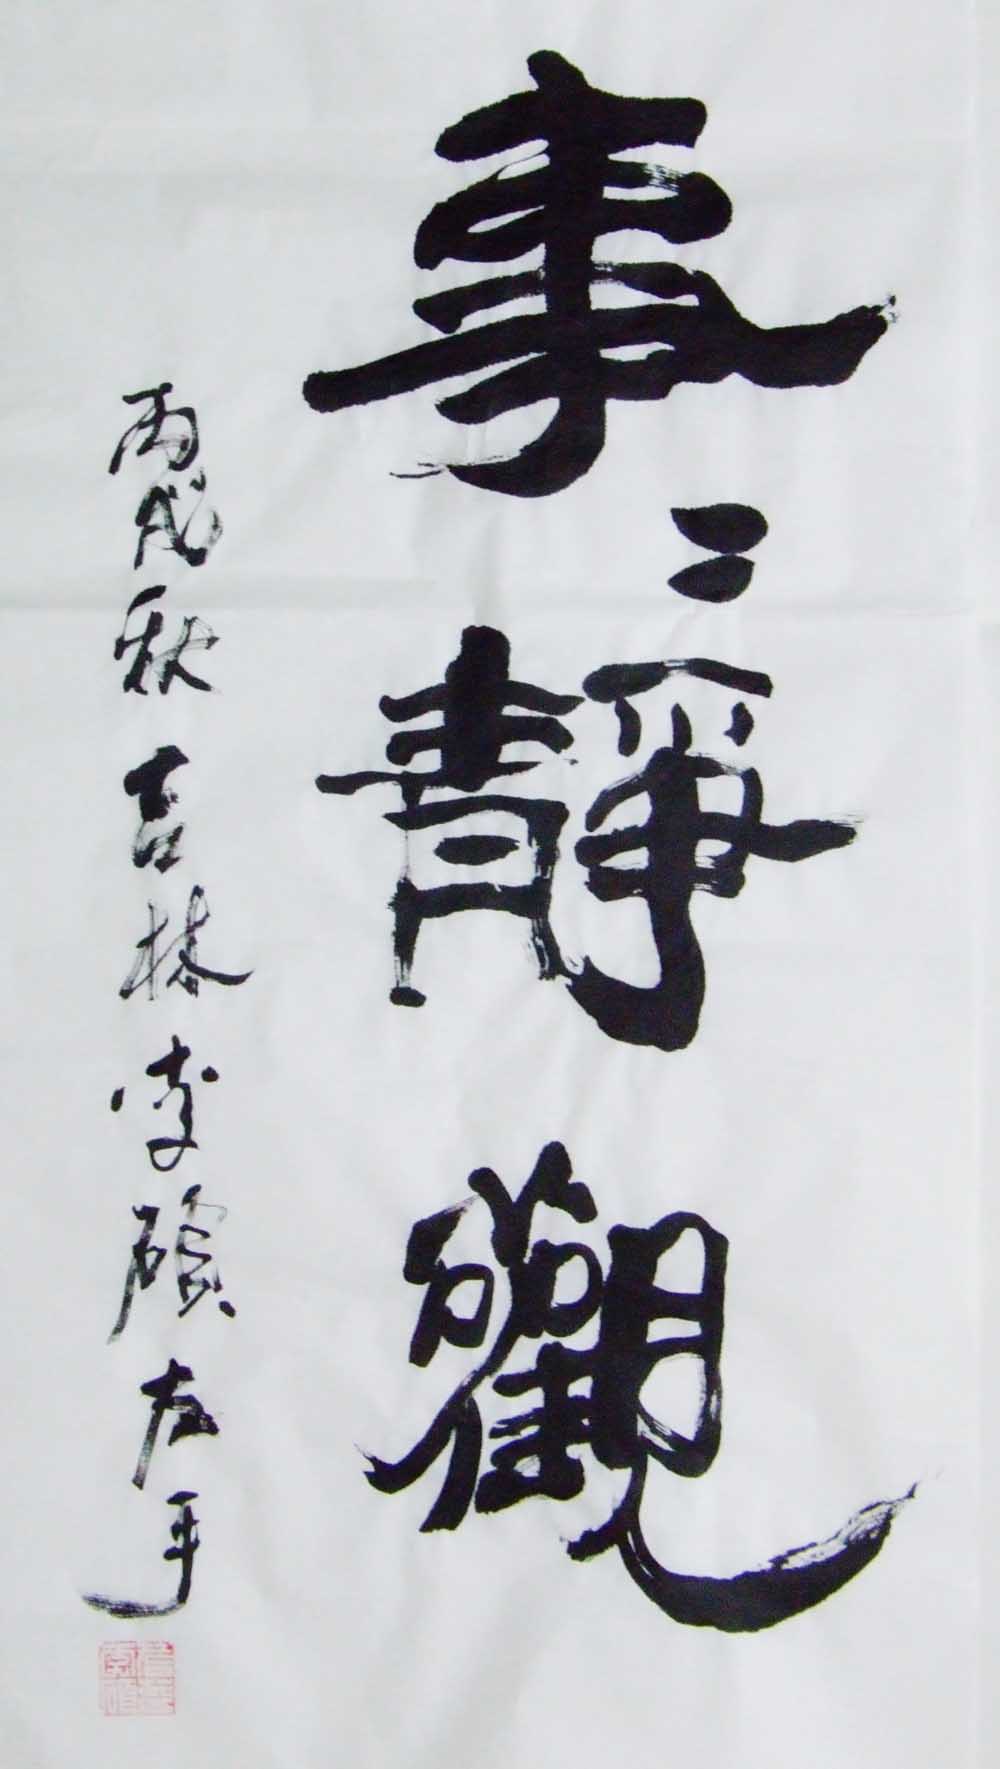 事〻靜觀
丙戌秋吉林李碩左手